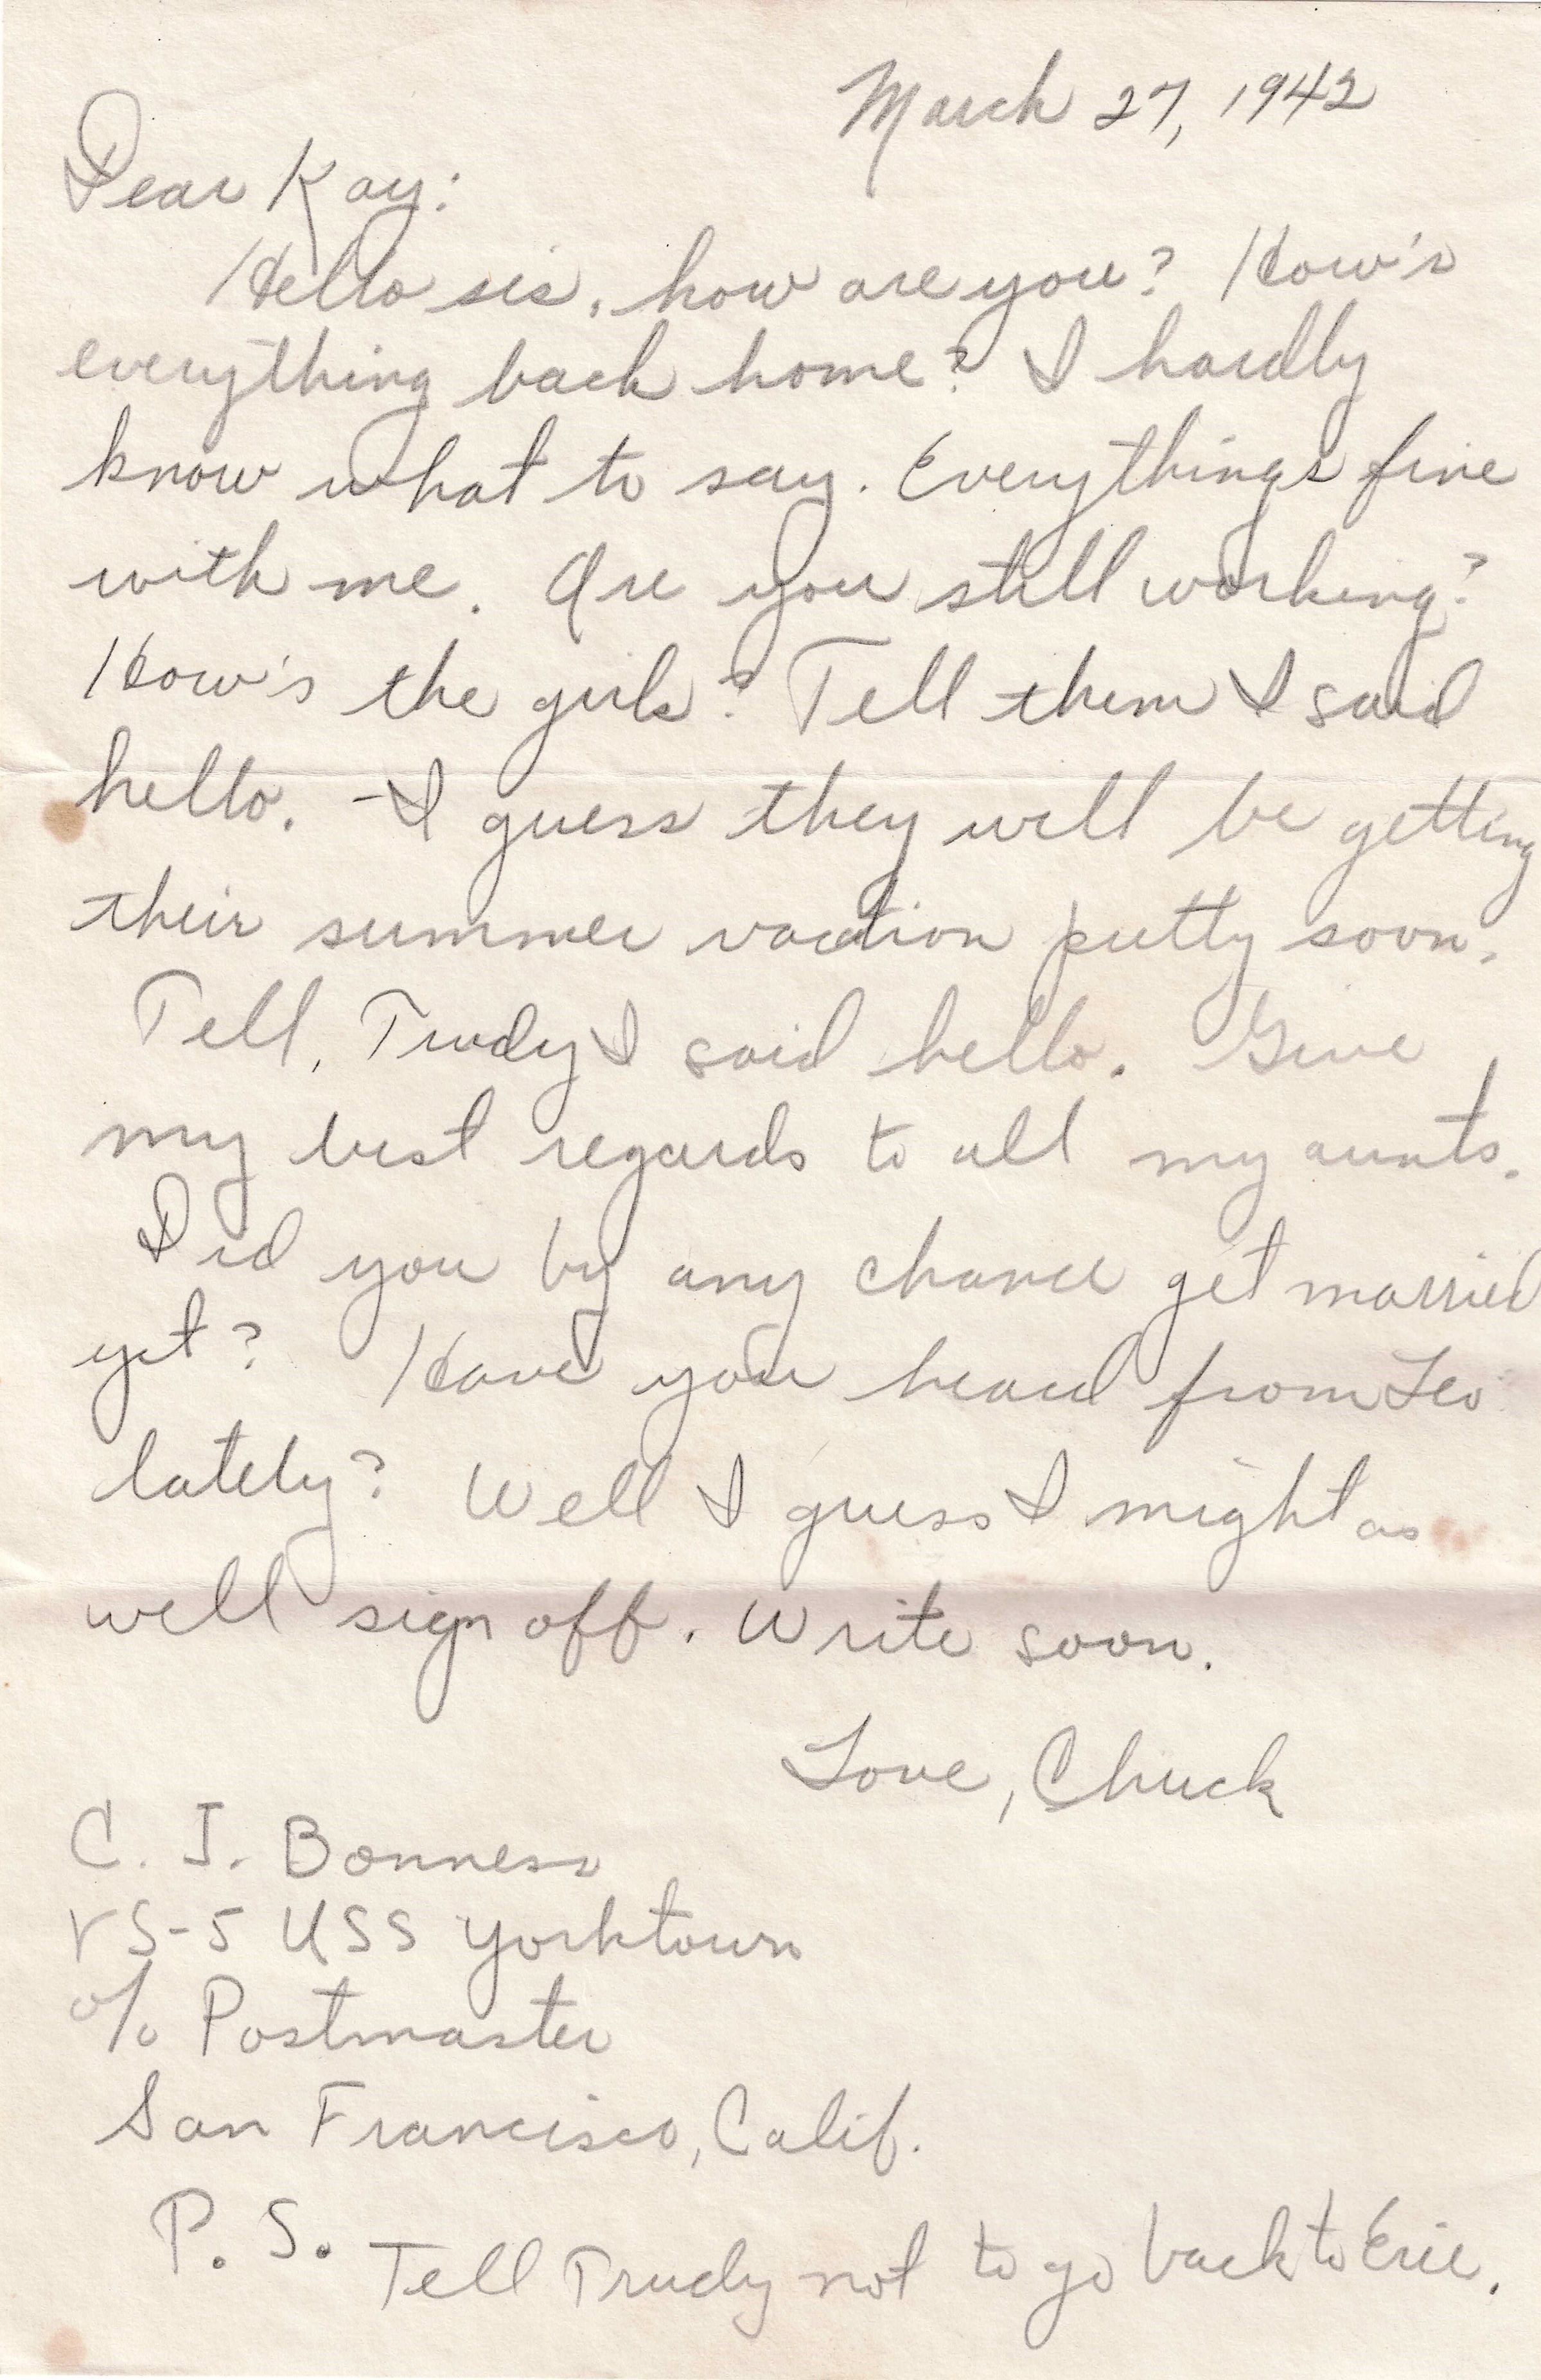 March 27, 1942
Dear Kay:
Hello sis, how are you? How's
everything back home? I hardly
know what to say. Everythings fine
with me. Are you still working?
How's the girls? Tell them I said
hello. - I guess they will be getting
their summer vacation pretty soon.
Tell, Trudy I said hello. Give
my best regards to all my aunts.
Did you by any chance get married
yet? Have you heard from Leo
lately? Well I guess I might as
well sign off. Write soon.
Love, Chuck
C. J. Bonness
VS-5 USS Yorktown
c/o Postmaster
San Francisco, Calif.
P. S. Tell Trudy not to go back to Erie.